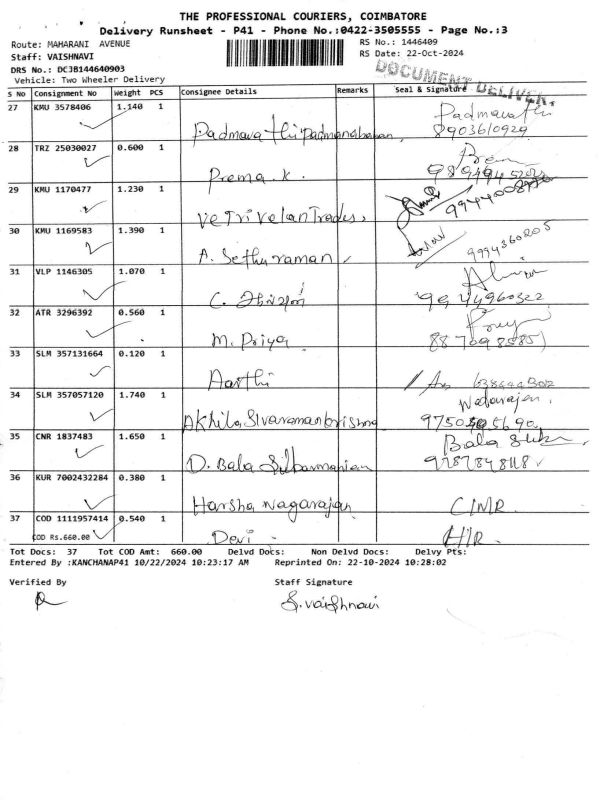 THE PROFESSIONAL COURIERS, COIMBATORE
Delivery Runsheet - P41 - Phone No.:0422-3505555 - Page No.:3
Route: MAHARANI AVENUE
RS No.: 1446409
Staff: VAISHNAVI
RS Date: 22-Oct-2024
DRS No.: DCJB144640903
DOCUMENT DELIVER
Vehicle: Two Wheeler Delivery
S No Consignment No Weight PCS Consignee Details Remarks Seal & Signature
27 KMU 3578406 1.140 1 Padmavathi
Padmavathi Padmanabahan, 8903610929
28 TRZ 25030027 0.600 1 Prem
Prema.K.
29 KMU 1170477 1.230 1
Vetrivelan Trades,
30 KMU 1169583 1.390 1 9994360205
A. Sethuraman,
31 VLP 1146305 1.070 1
C. 9944960322
32 ATR 3296392 0.560 1
M. Priya
33 SLM 357131664 0.120 1
Aarthi
34 SLM 357057120 1.740 1
Akhila Sivaramankrishna
35 CNR 1837483 1.650 1 Bala
D. Bala
36 KUR 7002432284 0.380 1
Harsha Nagarajan
37 COD 1111957414 0.540 1
COD Rs.660.00 Devi
Tot Docs: 37 Tot COD Amt: 660.00 Delvd Docs: Non Delvd Docs: Delvy Pts:
Entered By :KANCHANAP41 10/22/2024 10:23:17 AM Reprinted On: 22-10-2024 10:28:02
Verified By Staff Signature
S. Vaishnavi